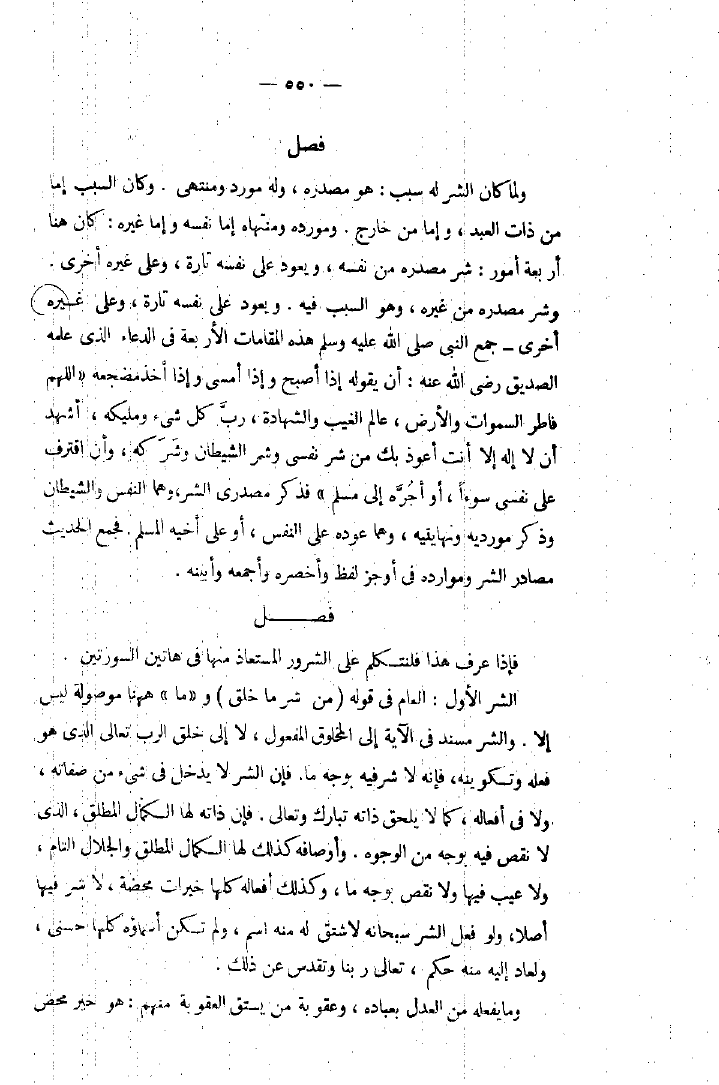 — ٥٥٠ —
فصل
ولما كان الشر له سبب : هو مصدره ، وله مورد ومنتهى . وكان السبب إما
من ذات العبد ، وإما من خارج . ومورده ومنتهاه إما نفسه وإما غيره : كان هنا
أربعة أمور : شر مصدره من نفسه ، ويعود على نفسه تارة ، وعلى غيره أخرى .
وشر مصدره من غيره ، وهو السبب فيه . ويعود على نفسه تارة ، وعلى غيره
أخرى ــ جمع النبى صلى الله عليه وسلم هذه المقامات الأربعة فى الدعاء الذى علمه
الصديق رضى الله عنه : أن يقوله إذا أصبح وإذا أمسى وإذا أخذ مضجعه «اللهم
فاطر السموات والأرض ، عالم الغيب والشهادة ، ربَّ كل شىء ومليكه ، أشهد
أن لا إله إلا أنت أعوذ بك من شر نفسى وشر الشيطان وشَرَكه ، وأن أقترف
على نفسى سوءاً ، أو أجُرَّه إلى مسلم » فذكر مصدرى الشر ، وهما النفس والشيطان
وذكر مورديه ونهايتيه ، وهما عوده على النفس ، أو على أخيه المسلم . فجمع الحديث
مصادر الشر وموارده فى أوجز لفظ وأخصره وأجمعه وأبينه .
فصــــــل
فإذا عرف هذا فلنتكلم على الشرور المستعاذ منها فى هاتين السورتين .
الشر الأول : العام فى قوله ( من شر ما خلق ) و «ما » ههنا موصولة ليس
إلا . والشر مسند فى الآية إلى المخلوق المفعول ، لا إلى خلق الرب تعالى الذى هو
فعله وتكوينه ، فإنه لا شر فيه بوجه ما . فإن الشر لا يدخل فى شىء من صفاته ،
ولا فى أفعاله ، كما لا يلحق ذاته تبارك وتعالى . فإن ذاته لها الكمال المطلق ، الذى
لا نقص فيه بوجه من الوجوه . وأوصافه كذلك لها الكمال المطلق والجلال التام ،
ولا عيب فيها ولا نقص بوجه ما ، وكذلك أفعاله كلها خيرات محضة ، لا شر فيها
أصلا ، ولو فعل الشر سبحانه لاشتق له منه اسم ، ولم تكن أسماؤه كلها حسنى ،
ولعاد إليه منه حكم ، تعالى ربنا وتقدس عن ذلك .
وما يفعله من العدل بعباده ، وعقوبة من يستق العقوبة منهم : هو خير محض